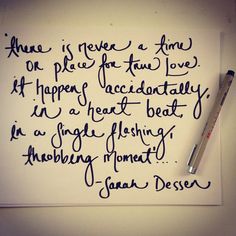 "there is never a time
or place for true love.
it happens accidentally,
in a heart beat,
in a single flashing,
throbbing moment"....
-Sarah Dessen